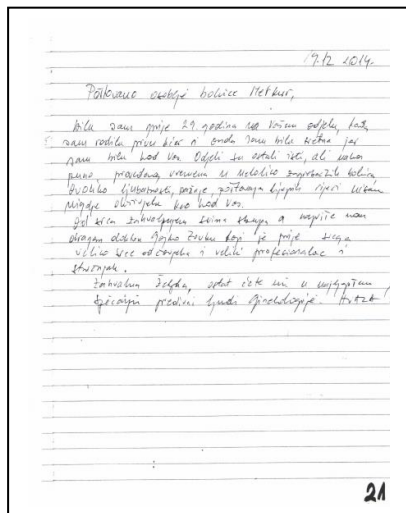 19.12.2014.
Poštovano osoblje bolnice Merkur,
bila sam prije 29. godina na Vašem odjelu, kada
sam rodila prvu kćer i onda sam bila sretna jer
sam bila kod Vas. Odjeli su ostali isti, ali nakon
puno provedenog vremena u nekoliko zagrebačkih bolnica
ovoliko ljubaznosti, pažnje, poštovanja lijepih riječi nisam
nigdje doživjela kao kod Vas.
Od srca zahvaljujem svima skupa a najviše mom
dragom doktoru Gojku
veliko srce od čovjeka i veliki profesionalac i
stručnjak.
Zahvalna Željka, ostat ćete mi u najljepšem
sjećanju predivni ljudi Ginekologije. Hvala
21